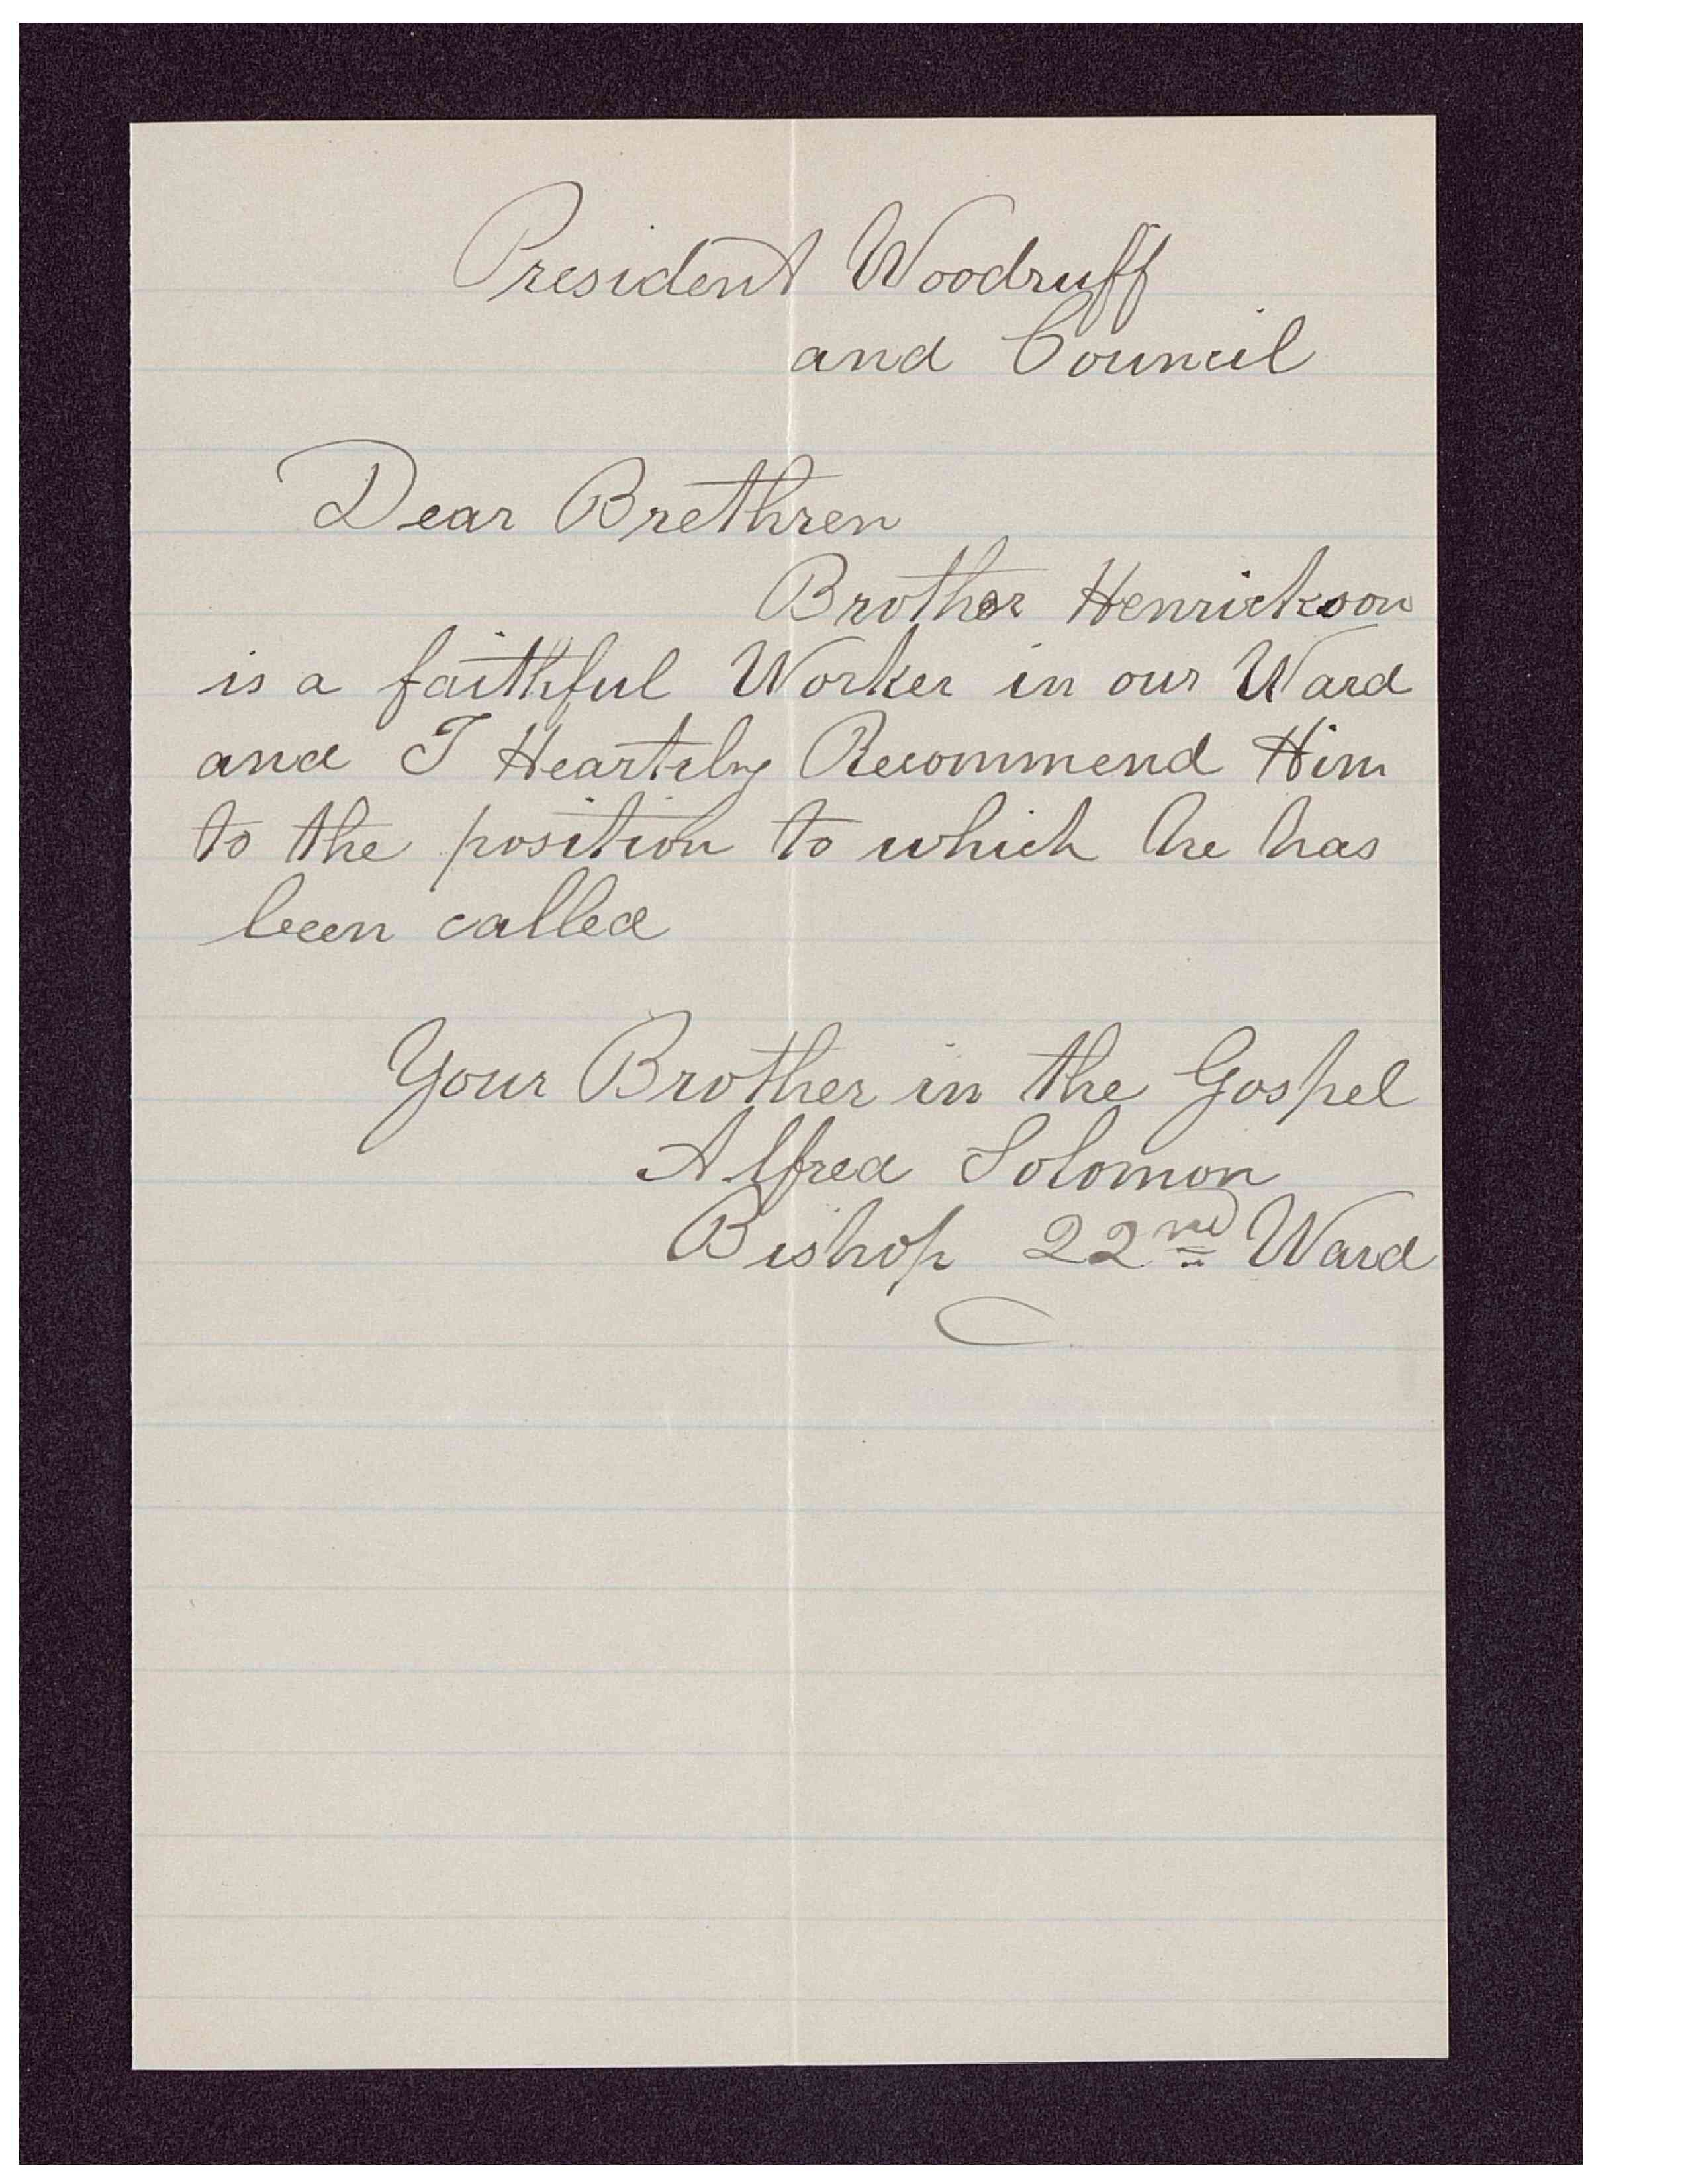 President Woodruff
and Council
Dear Brethren
Brother Henrickson
is a faithful Worker in our Ward
and I Heartily Recommend Him
to the position to which he has
been called
Your Brother in the Gospel
Alfred Solomon
Bishop 22nd Ward